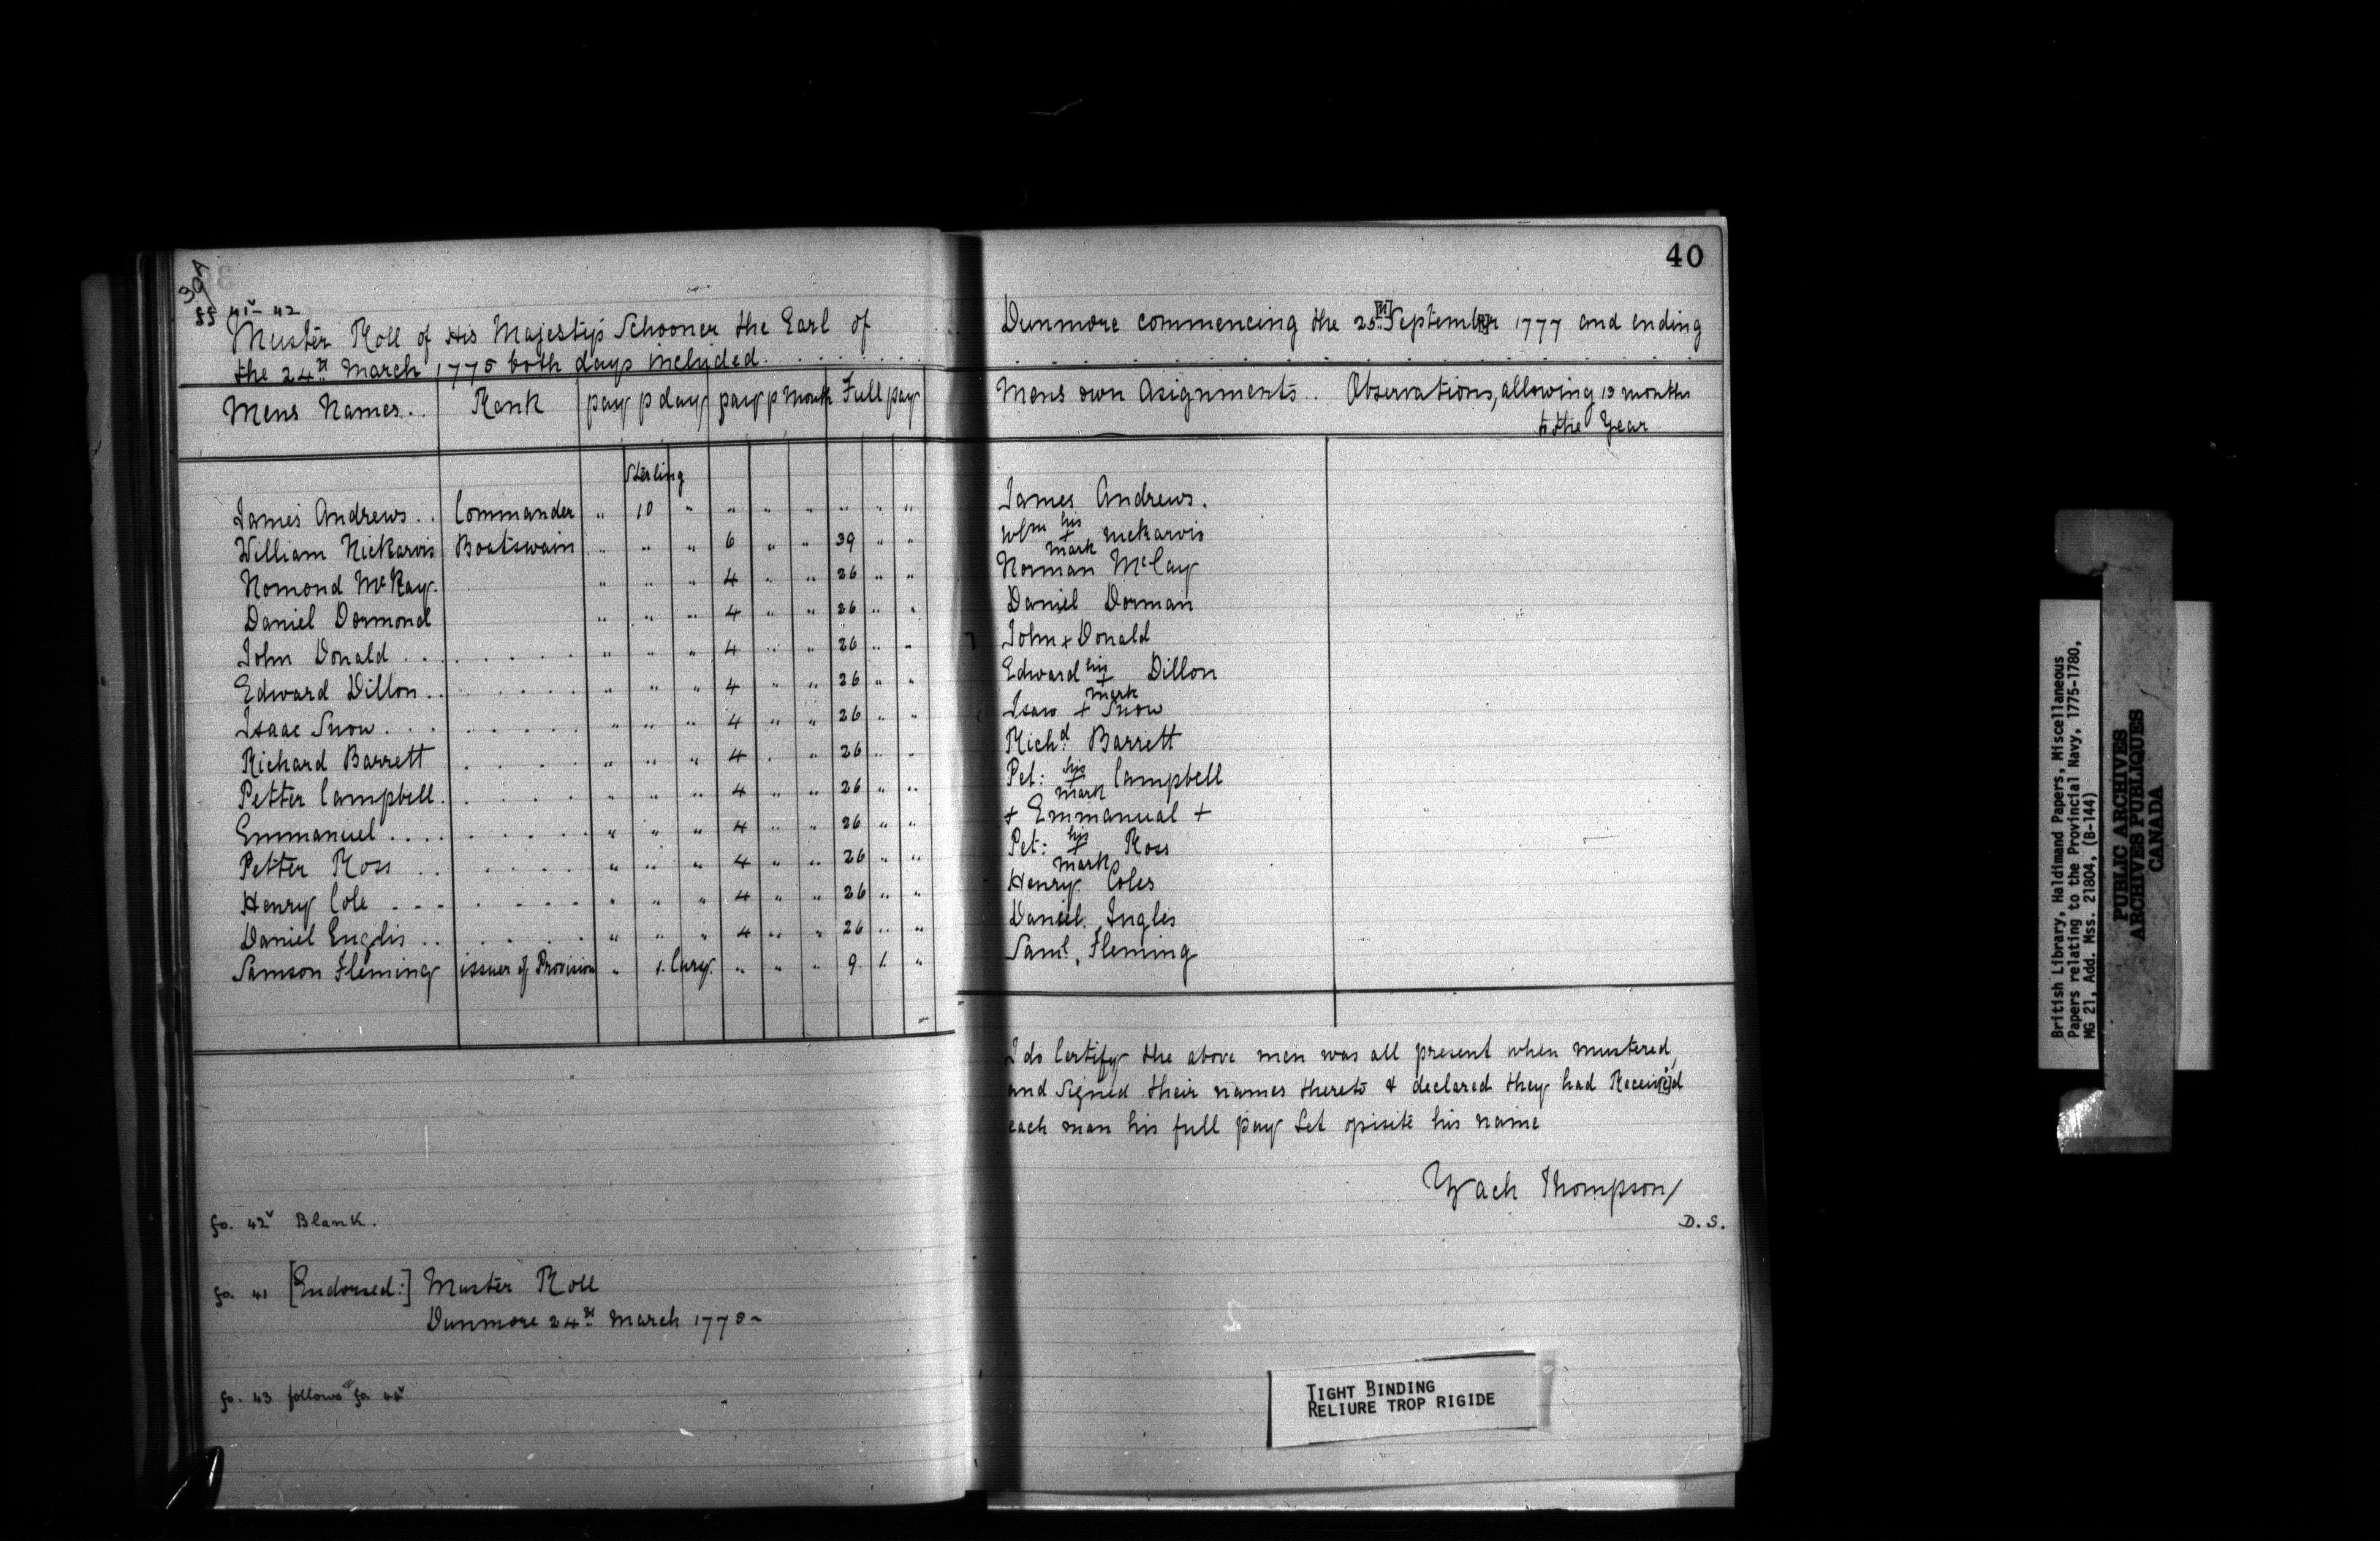 39v
ff 41v-42
Muster Roll of His Majesty's Schooner the Earl of Dunmore commencing the 25[th] September 1777 and ending
the 24th March 1778 both days included . . . . . . . . .
Mens Names.. Rank pay p day pay p Month Full pay Mens own Asignments.. Observations, allowing 13 months
to the Year
Sterling
James Andrews.. Commander " 10 " " " " " " " James Andrews.
William Nickarvis Boatswain " " " 6 " " 39 " " Wm his + mark Nickarvis
Nomond McKay. " " " 4 " " 26 " " Norman McCay
Daniel Dormond " " " 4 " " 26 " " Daniel Dorman
John Donald . . . " " " 4 " " 26 " " John + Donald
Edward Dillon.. " " " 4 " " 26 " " Edward his + mark Dillon
Isaac Snow . . . " " " 4 " " 26 " " Isaw + Snow
Richard Barrett " " " 4 " " 26 " " Richd Barrett
Petter Campbell. " " " 4 " " 26 " " Pet: his + mark Campbell
Emmanuel . . . . " " " 4 " " 26 " " + Emmanual +
Petter Ross . . " " " 4 " " 26 " " Pet: his + mark Ross
Henry Cole . . . " " " 4 " " 26 " " Henry Coles
Daniel Englis . . " " " 4 " " 26 " " Daniel Inglis
Samson Fleming issuer of Provision " 1. Cury. " " " 9 1. " Saml. Fleming
I do Certify the above men was all present when mustered,
and Signed their names thereto & declared they had Receiv[e]d
each man his full pay Set opisite his name
Zach Thompson/
D.S.
fo. 42v Blank.
fo. 41 [Endorsed:] Muster Roll
Dunmore 24th March 1778-
fo. 43 follows fo. 44v
40
TIGHT BINDING
RELIURE TROP RIGIDE
British Library, Haldimand Papers, Miscellaneous
Papers relating to the Provincial Navy, 1775-1780,
MG 21, Add. Mss. 21804, (B-144)
PUBLIC ARCHIVES
ARCHIVES PUBLIQUES
CANADA